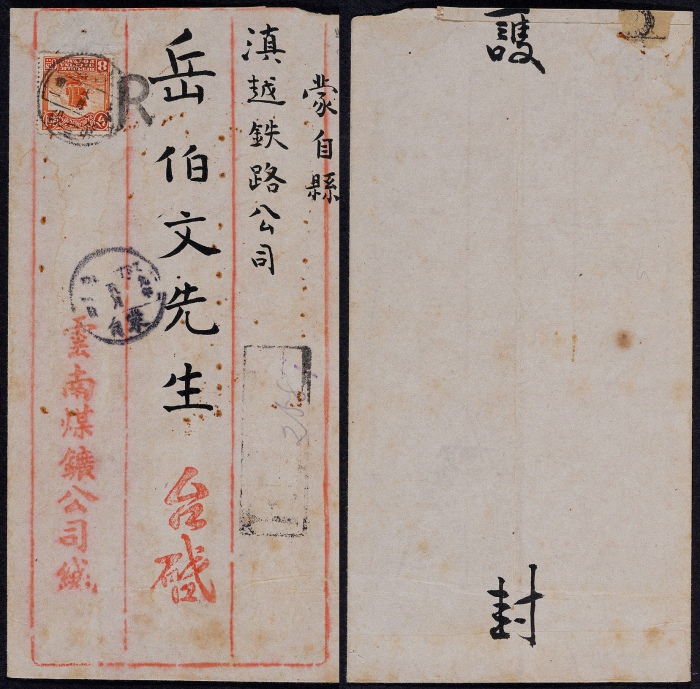 蒙自縣
滇越鉄路公司
岳伯文先生
台啟
雲南煤鑛公司緘
R
8
蒙自
護
封